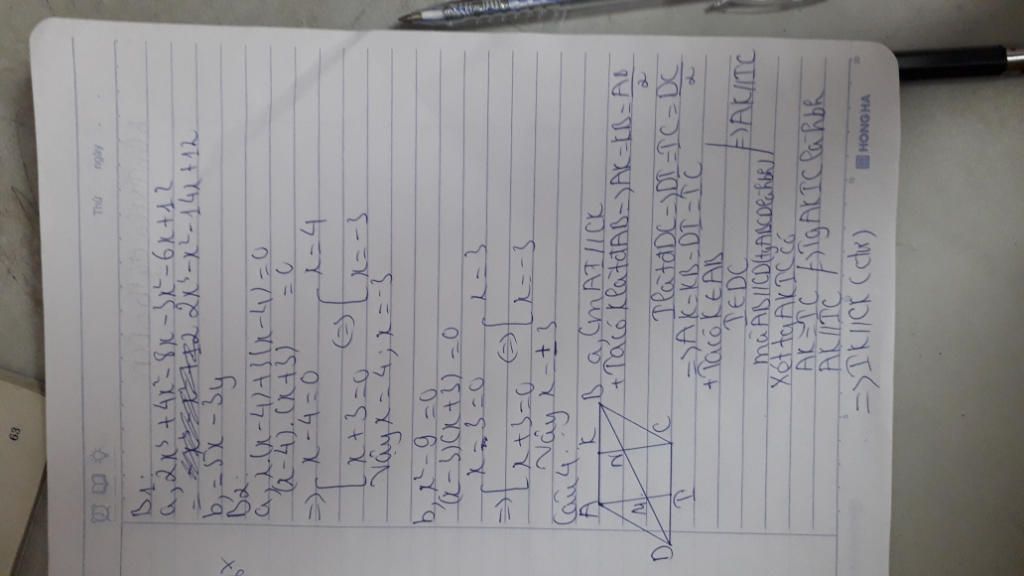 63
Thứ ngày
B1:
a, 2x³+4x²-8x-3x²-6x+12
= 2x³-x²-14x+12
b, =5x-3y
B2:
a, x(x-4)+3(x-4)=0
(x-4).(x+3) =0
=> [x-4=0 [x=4
[x+3=0 (=) [x=-3
Vậy x=4, x=-3
b, x²-9=0
(x-3)(x+3)=0
=> [x-3=0 [x=3
[x+3=0 (=) [x=-3
Vậy x=±3
Câu 4:
A K B
M N
D I C
a, Cm AI//CK
+Ta có K là td AB=>AK=KB=AB/2
I là td DC=>DI=IC=DC/2
=>AK=KB=DI=IC
+Ta có K∈AB
I∈DC
mà AB//CD(tgABCD là hbh) =>AK//IC
Xét tg AKIC có
AK=IC
AK//IC =>Tg AKIC là hbh
=>IK//CK (đchr)
HONG HA